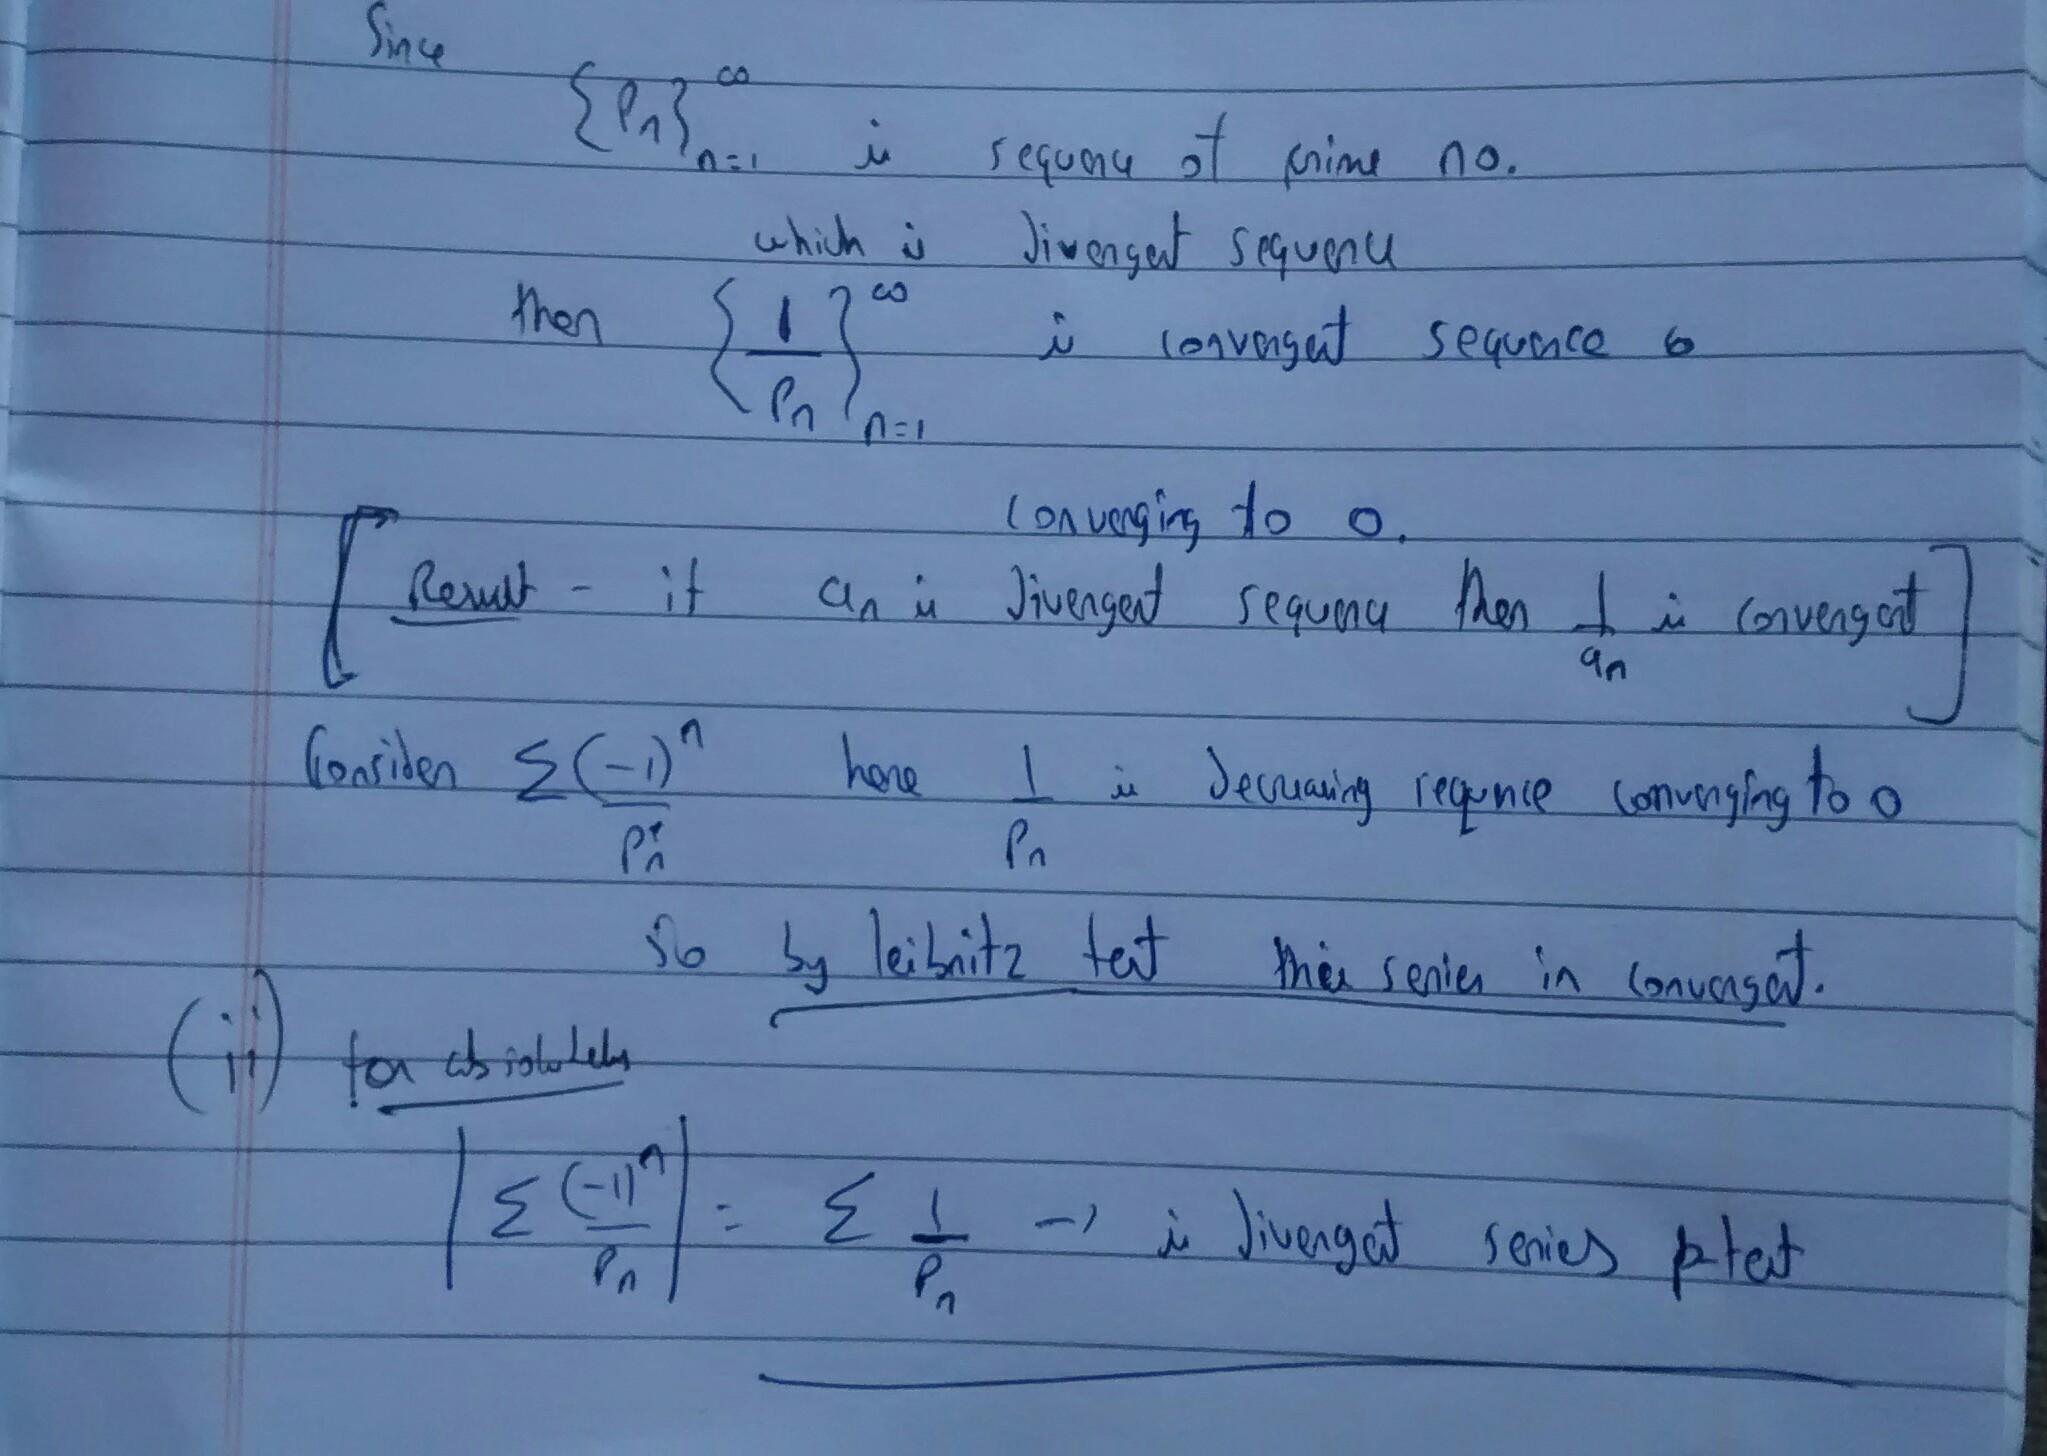 Since
{Pn}∞ n=1 is sequence of prime no.
which is divergent sequence
then {1/Pn}∞ n=1 is convergent sequence
converging to 0.
[Result - if an is divergent sequence then 1/an is convergent]
Consider Σ(-1)^n/Pn here 1/Pn is decreasing sequence converging to 0
So by leibnitz test this series in convergent.
(ii) for absolutely
|Σ (-1)^n/Pn| = Σ 1/Pn → is divergent series p test